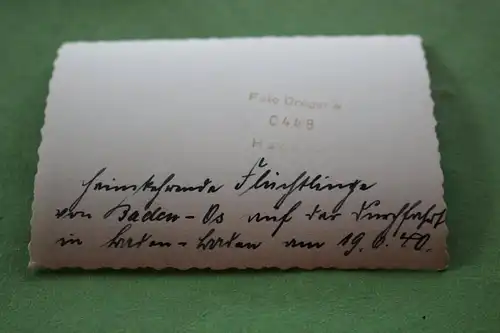 Foto Drogerie
C448
heimkehrende Flüchtlinge
von Baden-Os auf der Durchfahrt
in Baden-Baden am 19.6.40.